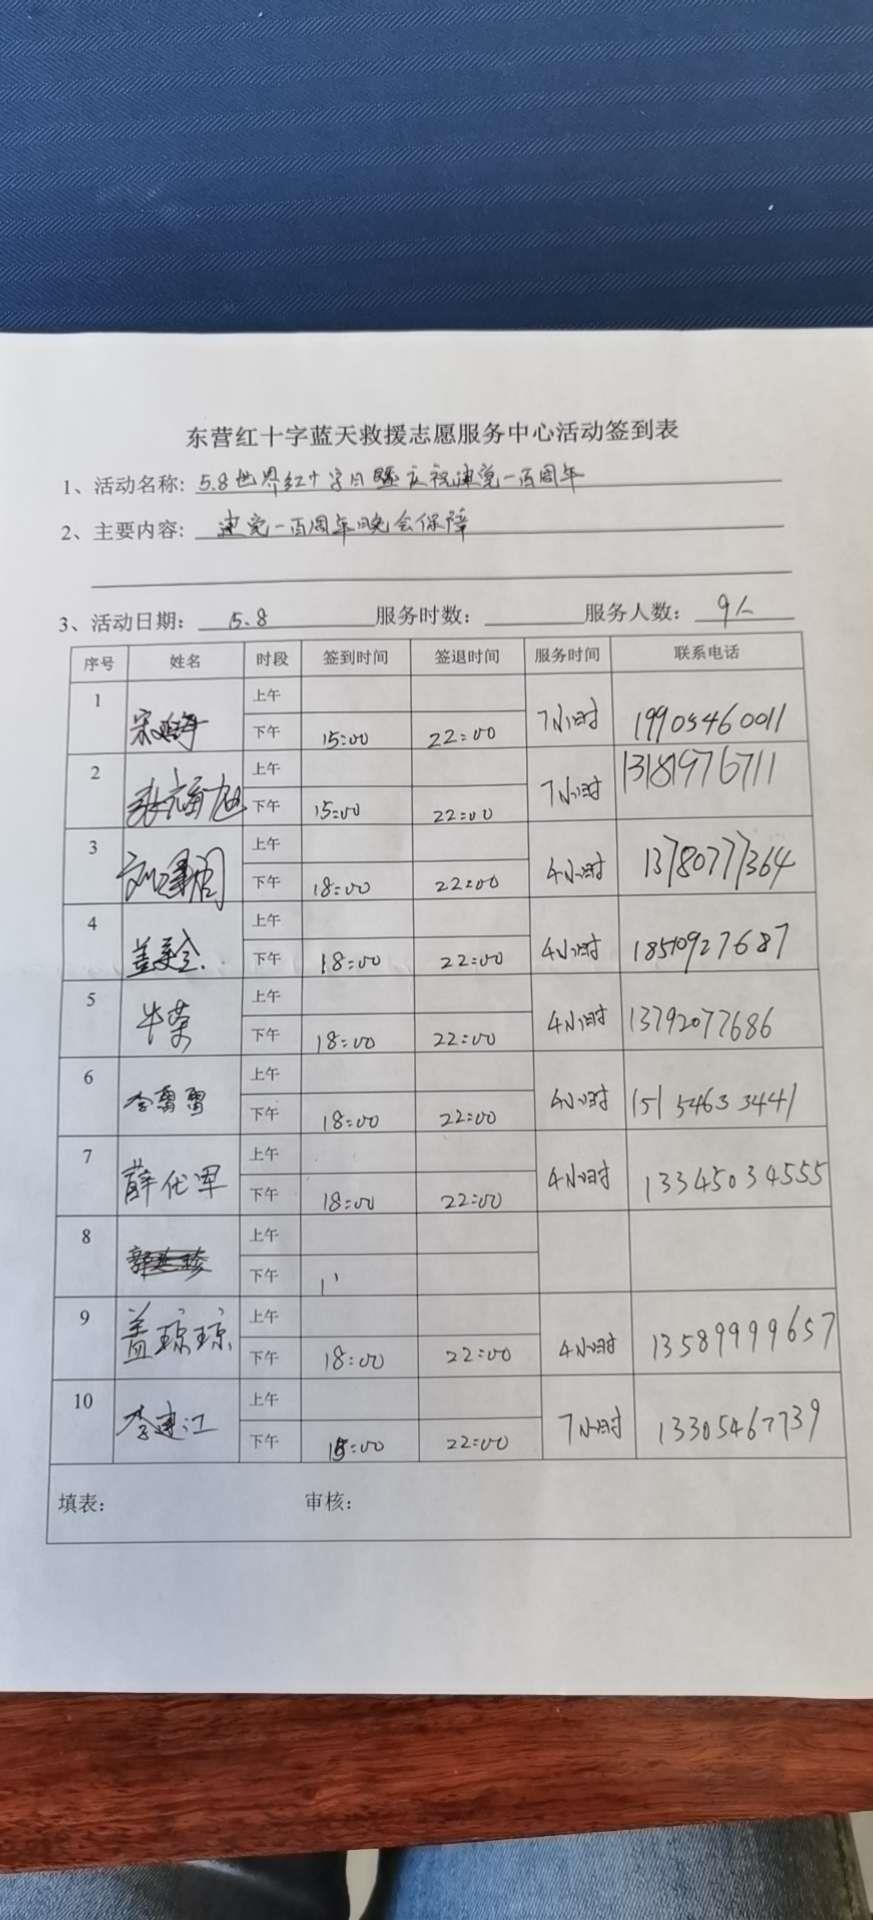 东营红十字蓝天救援志愿服务中心活动签到表
1、活动名称: 5.8世界红十字日暨庆祝建党一百周年
2、主要内容: 建党一百周年晚会保障
3、活动日期: 5.8 服务时数: 服务人数: 9人
序号 姓名 时段 签到时间 签退时间 服务时间 联系电话
1 上午
下午 15:00 22:00 7小时 19905460011
2 上午
张福旭 下午 15:00 22:00 7小时 13181976711
3 上午
下午 18:00 22:00 4小时 13780777364
4 上午
盖 下午 18:00 22:00 4小时 18510927687
5 上午
牛荣 下午 18:00 22:00 4小时 13792077686
6 上午
下午 18:00 22:00 4小时 151 5463 3441
7 上午
薛化军 下午 18:00 22:00 4小时 13345034555
8 上午
下午
9 上午
盖琼琼 下午 18:00 22:00 4小时 13589999657
10 上午
李建江 下午 15:00 22:00 7小时 13305467739
填表: 审核: